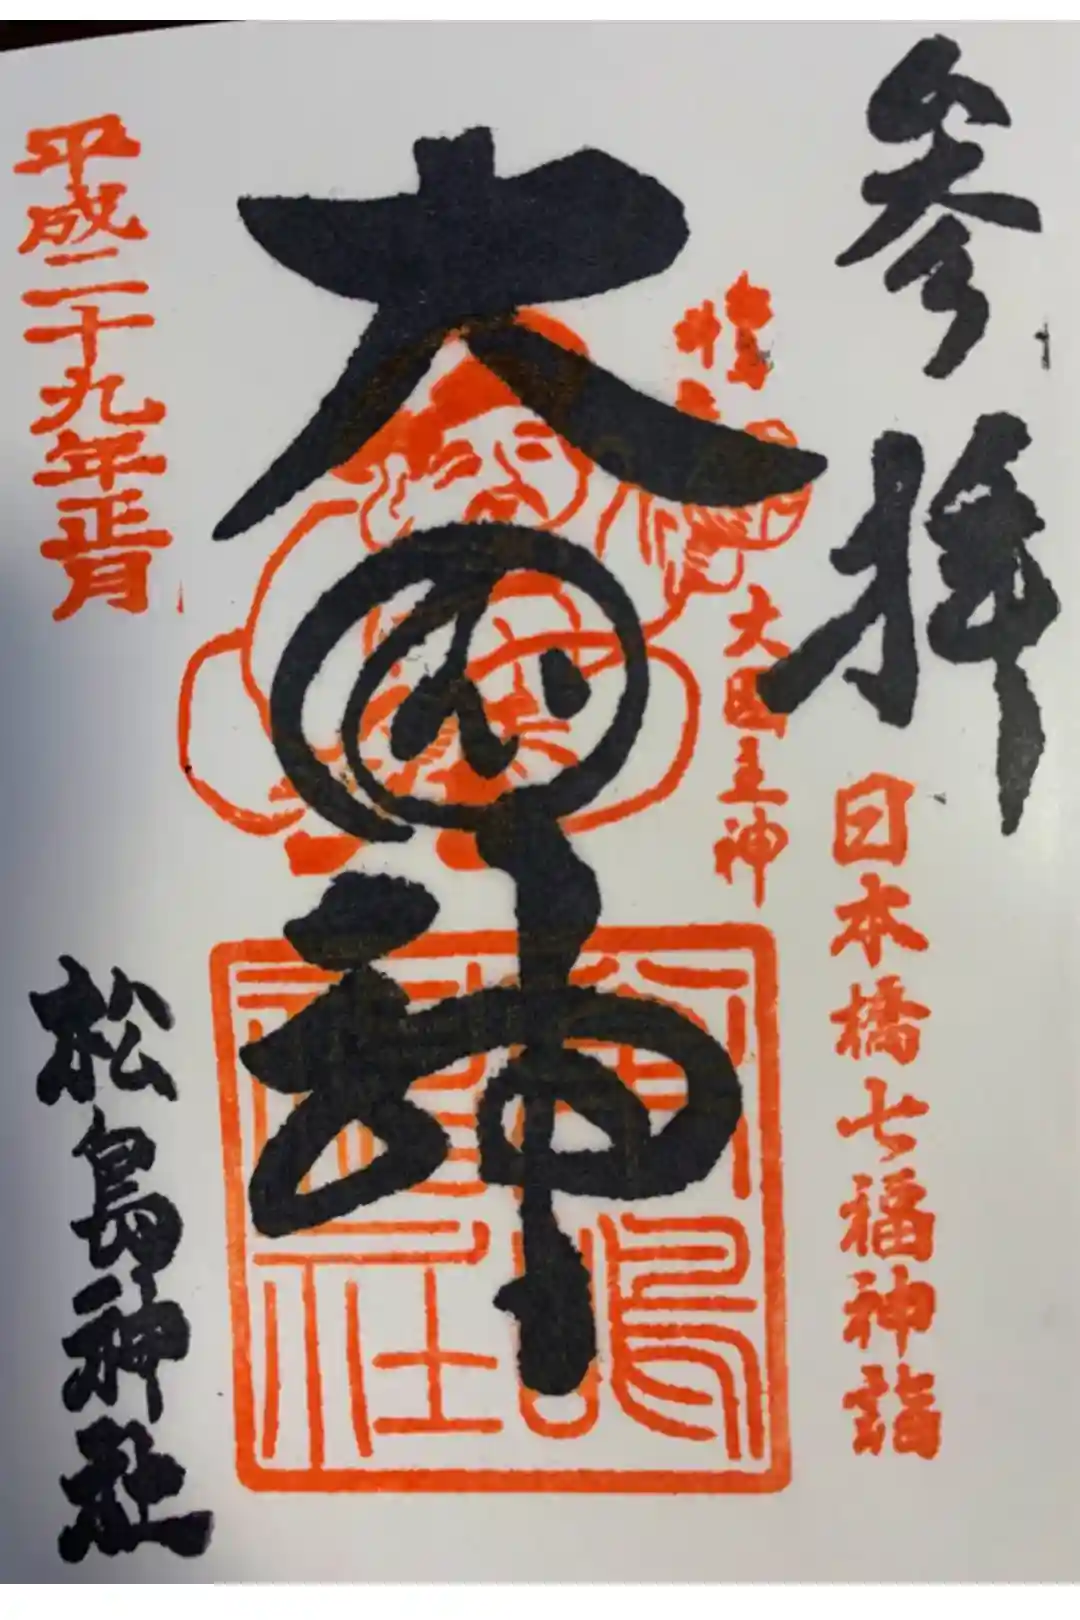 参拝
日本橋七福神詣
大国主神
大国神
松嶋神社
平成二十九年正月
松島神社